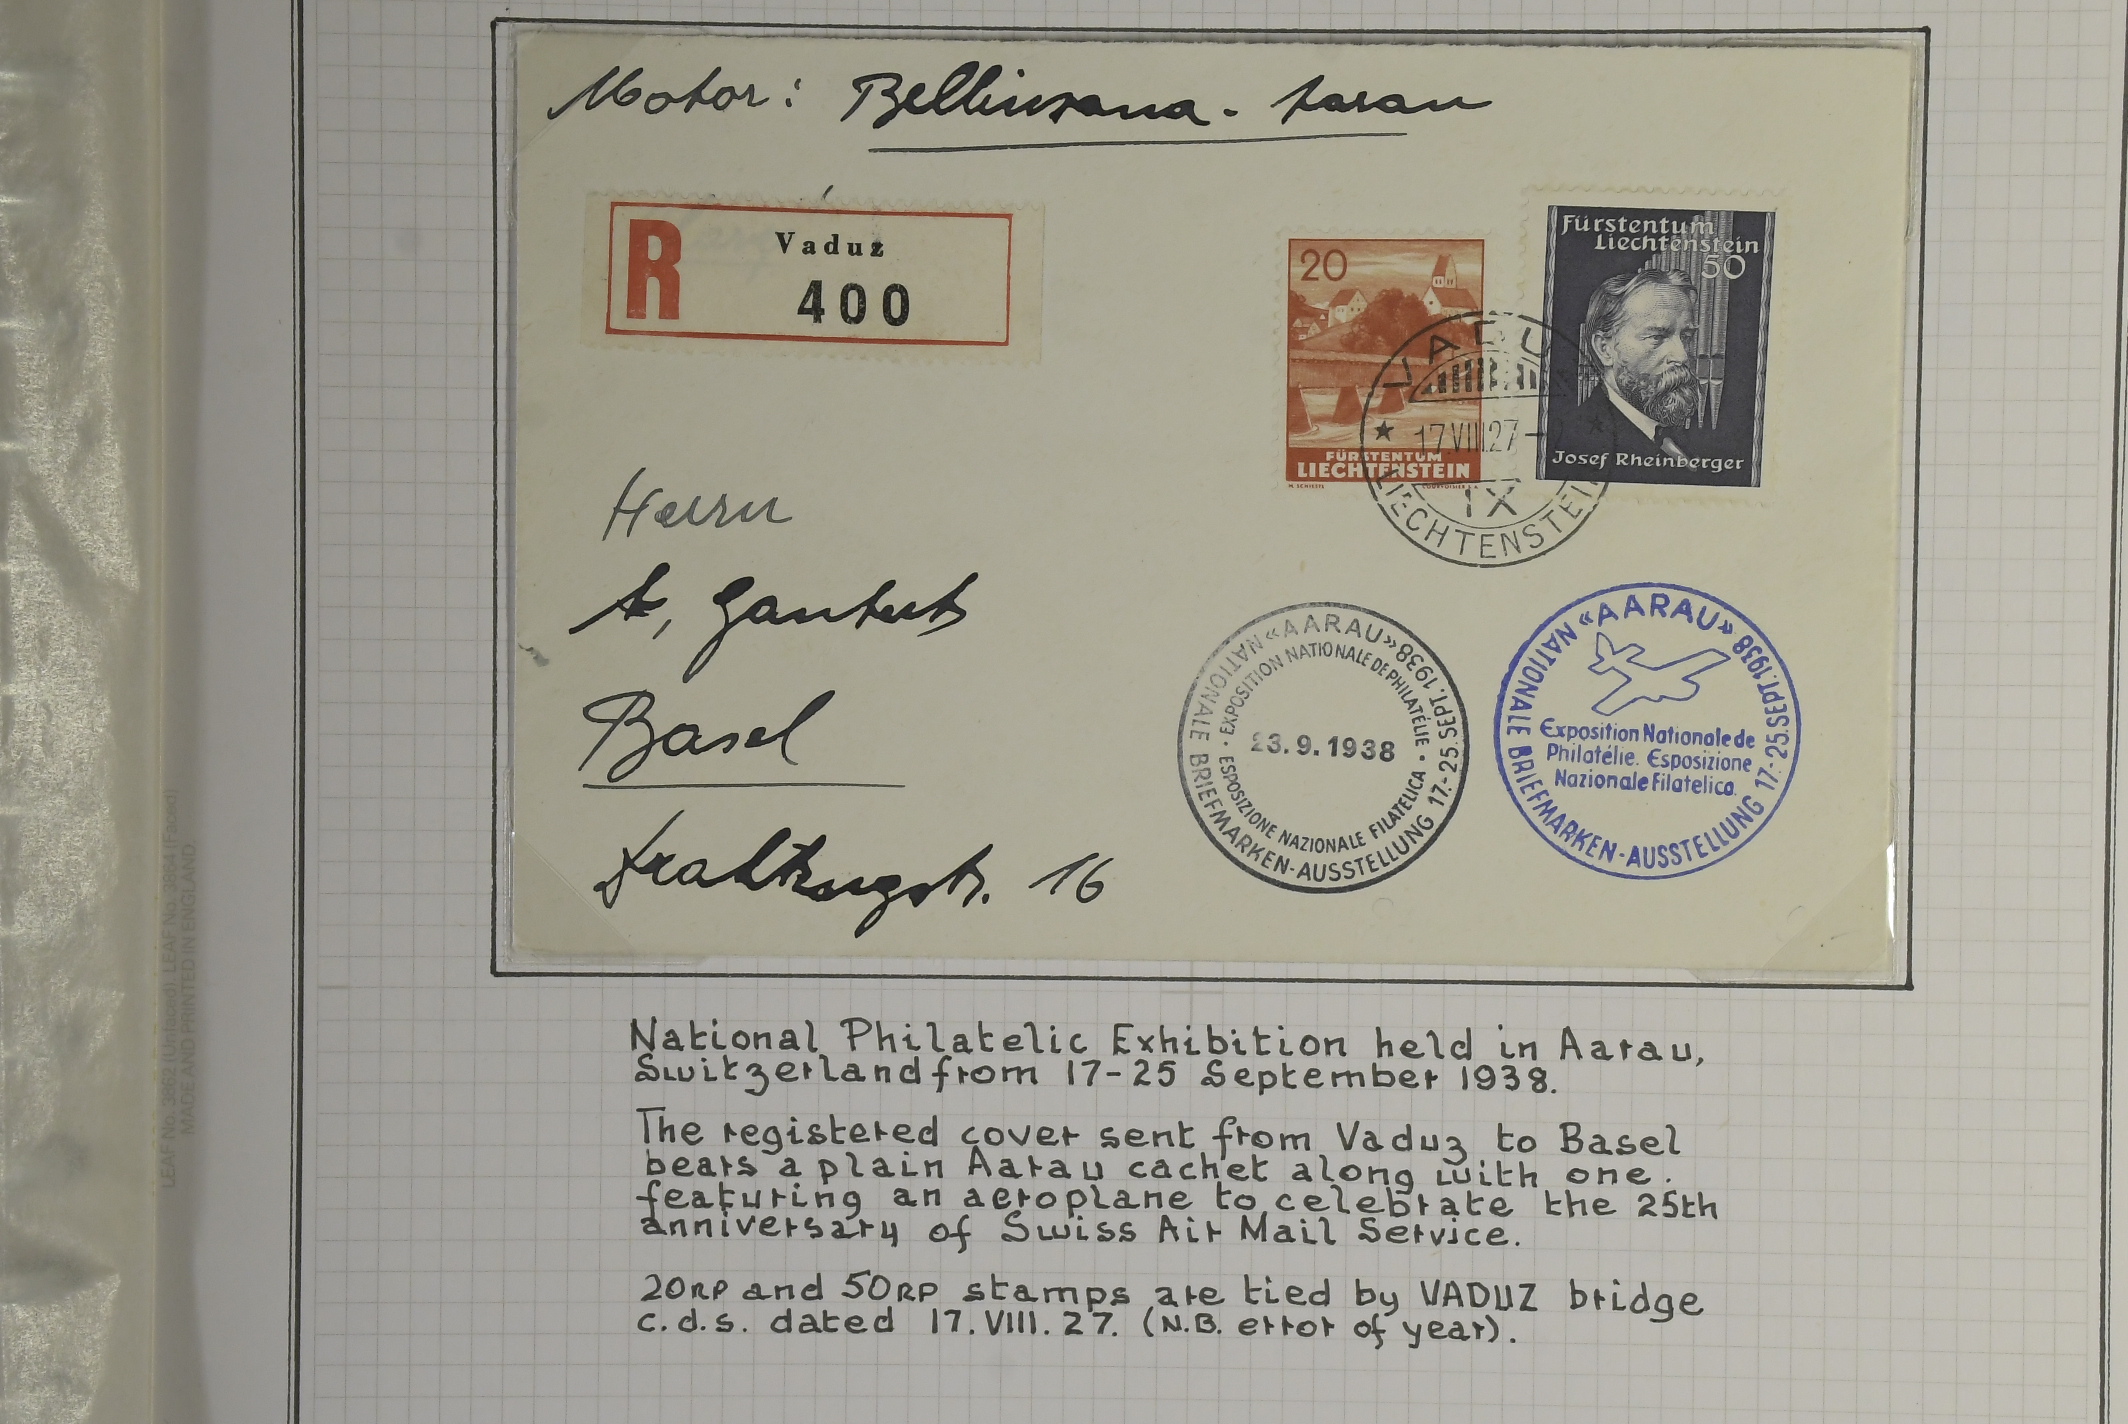 Motor: Bellinzona - Aarau
R
Vaduz
400
20
FÜRSTENTUM
LIECHTENSTEIN
COURVOISIER
Fürstentum
Liechtenstein
50
Josef Rheinberger
VADUZ
17.VIII.27-
IX
LIECHTENSTEIN
Herrn
A,
Basel
16
«AARAU» 17.-25. SEPT. 1938
NATIONALE BRIEFMARKEN-AUSSTELLUNG
EXPOSITION NATIONALE DE PHILATÉLIE
ESPOSIZIONE NAZIONALE FILATELICA
23.9.1938
«AARAU» 17.-25. SEPT. 1938
NATIONALE BRIEFMARKEN-AUSSTELLUNG
Exposition Nationale de
Philatélie. Esposizione
Nazionale Filatelica.
National Philatelic Exhibition held in Aarau,
Switzerland from 17-25 September 1938.
The registered cover sent from Vaduz to Basel
bears a plain Aarau cachet along with one.
featuring an aeroplane to celebrate the 25th
anniversary of Swiss Air Mail Service.
20RP and 50RP stamps are tied by VADUZ bridge
c.d.s. dated 17.VIII.27. (N.B. error of year).
LEAF No. 3862 (Unfaced). LEAF No. 3864 (Faced)
MADE AND PRINTED IN ENGLAND